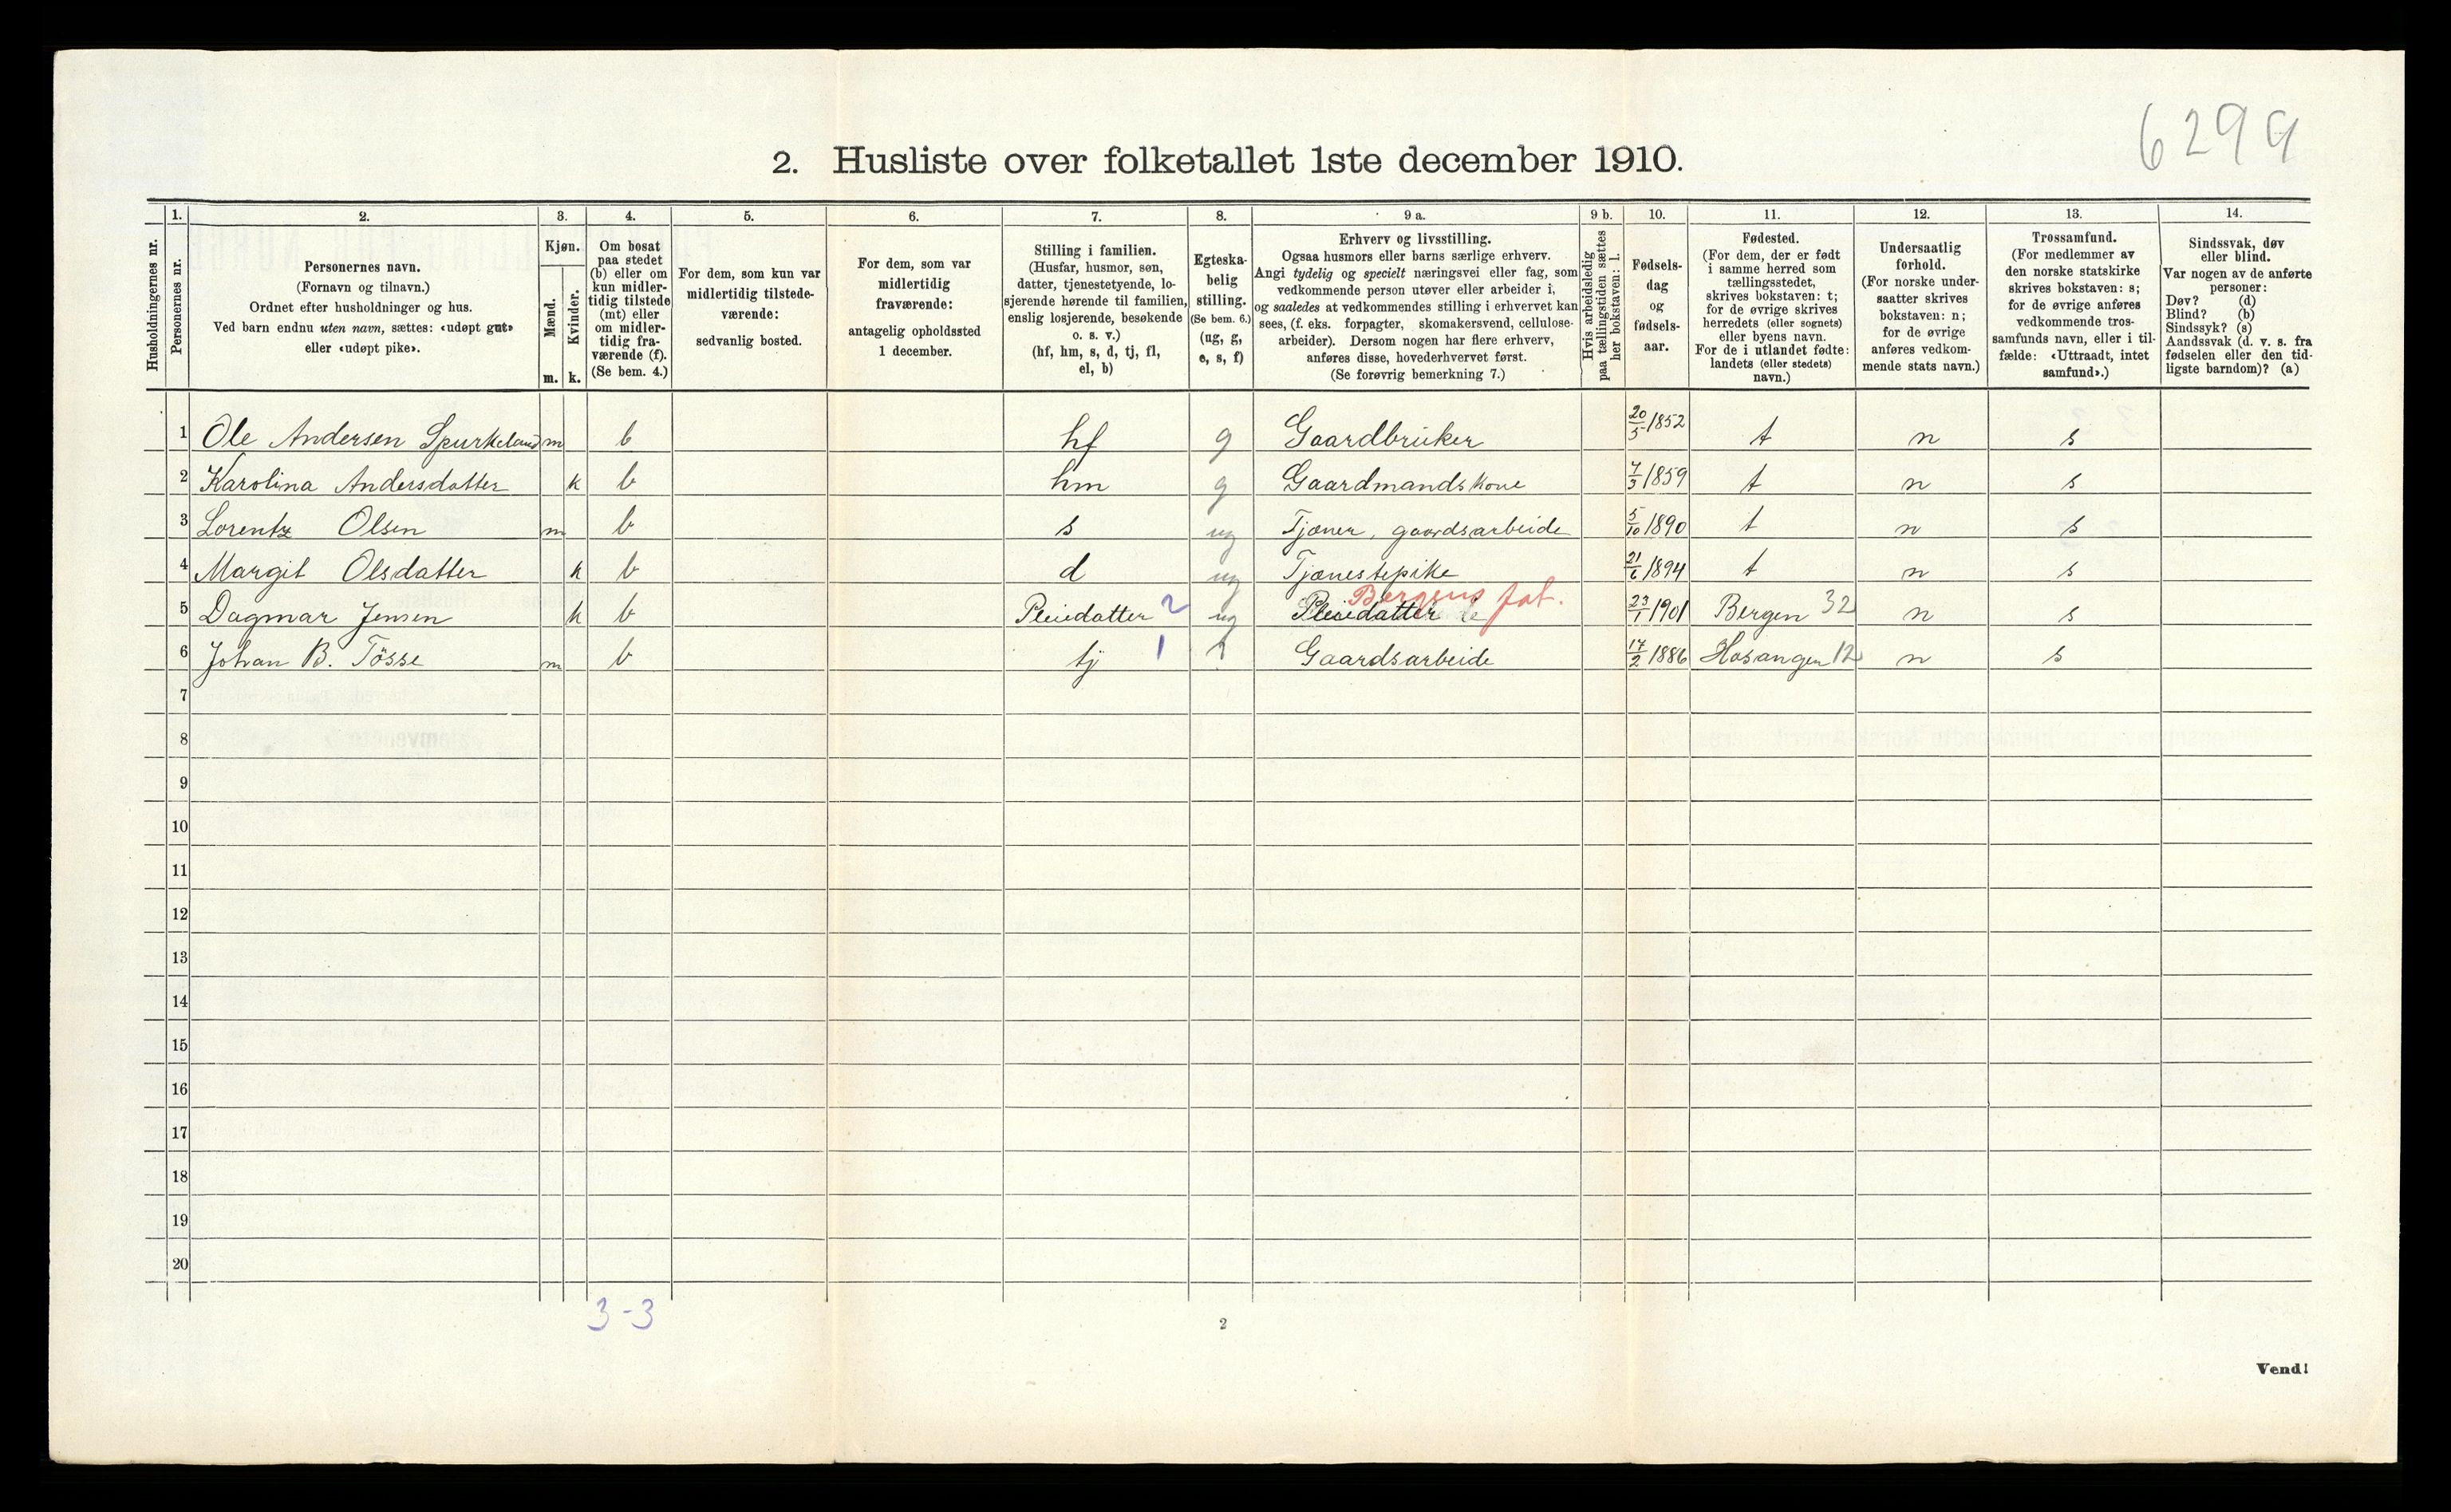 6299
2. Husliste over folketallet 1ste december 1910.
Husholdningernes nr.
1.
Personernes nr.
2.
Personernes navn.
(Fornavn og tilnavn.)
Ordnet efter husholdninger og hus.
Ved barn endnu uten navn, sættes: «udøpt gut»
eller «udøpt pike».
3.
Kjøn.
Mænd.
m.
Kvinder.
k.
4.
Om bosat
paa stedet
(b) eller om
kun midler-
tidig tilstede
(mt) eller
om midler-
tidig fra-
værende (f).
(Se bem. 4.)
5.
For dem, som kun var
midlertidig tilstede-
værende:
sedvanlig bosted.
6.
For dem, som var
midlertidig
fraværende:
antagelig opholdssted
1 december.
7.
Stilling i familien.
(Husfar, husmor, søn,
datter, tjenestetyende, lo-
sjerende hørende til familien,
enslig losjerende, besøkende
o. s. v.)
(hf, hm, s, d, tj, fl,
el, b)
8.
Egteska-
belig
stilling.
(Se bem. 6.)
(ug, g,
e, s, f)
9 a.
Erhverv og livsstilling.
Ogsaa husmors eller barns særlige erhverv.
Angi tydelig og specielt næringsvei eller fag, som
vedkommende person utøver eller arbeider i,
og saaledes at vedkommendes stilling i erhvervet kan
sees, (f. eks. forpagter, skomakersvend, cellulose-
arbeider). Dersom nogen har flere erhverv,
anføres disse, hovederhvervet først.
(Se forøvrig bemerkning 7.)
9 b.
Hvis arbeidsledig
paa tællingstiden sættes
her bokstaven: l.
10.
Fødsels-
dag
og
fødsels-
aar.
11.
Fødested.
(For dem, der er født
i samme herred som
tællingsstedet,
skrives bokstaven: t;
for de øvrige skrives
herredets (eller sognets)
eller byens navn.
For de i utlandet fødte:
landets (eller stedets)
navn.)
12.
Undersaatlig
forhold.
(For norske under-
saatter skrives
bokstaven: n;
for de øvrige
anføres vedkom-
mende stats navn.)
13.
Trossamfund.
(For medlemmer av
den norske statskirke
skrives bokstaven: s;
for de øvrige anføres
vedkommende tros-
samfunds navn, eller i til-
fælde: «Uttraadt, intet
samfund».)
14.
Sindssvak, døv
eller blind.
Var nogen av de anførte
personer:
Døv? (d)
Blind? (b)
Sindssyk? (s)
Aandssvak (d. v. s. fra
fødselen eller den tid-
ligste barndom)? (a)
1 Ole Andersen Spurkeland m b hf g Gaardbruker 20/5 1852 t n s
2 Karolina Andersdatter k b hm g Gaardmandskone 7/3 1859 t n s
3 Lorentz Olsen m b s ug Tjæner, gaardsarbeide 5/10 1890 t n s
4 Margit Olsdatter k b d ug Tjænestepike 21/6 1894 t n s
5 Dagmar Jensen k b Pleiedatter 2 ug Pleiedatter Bergens fat. 23/1 1901 Bergen 32 n s
6 Johan B. Tösse m b tj 1 Gaardsarbeide 17/2 1886 Hosanger 12 n s
7
8
9
10
11
12
13
14
15
16
17
18
19
20
3-3
2
Vend!